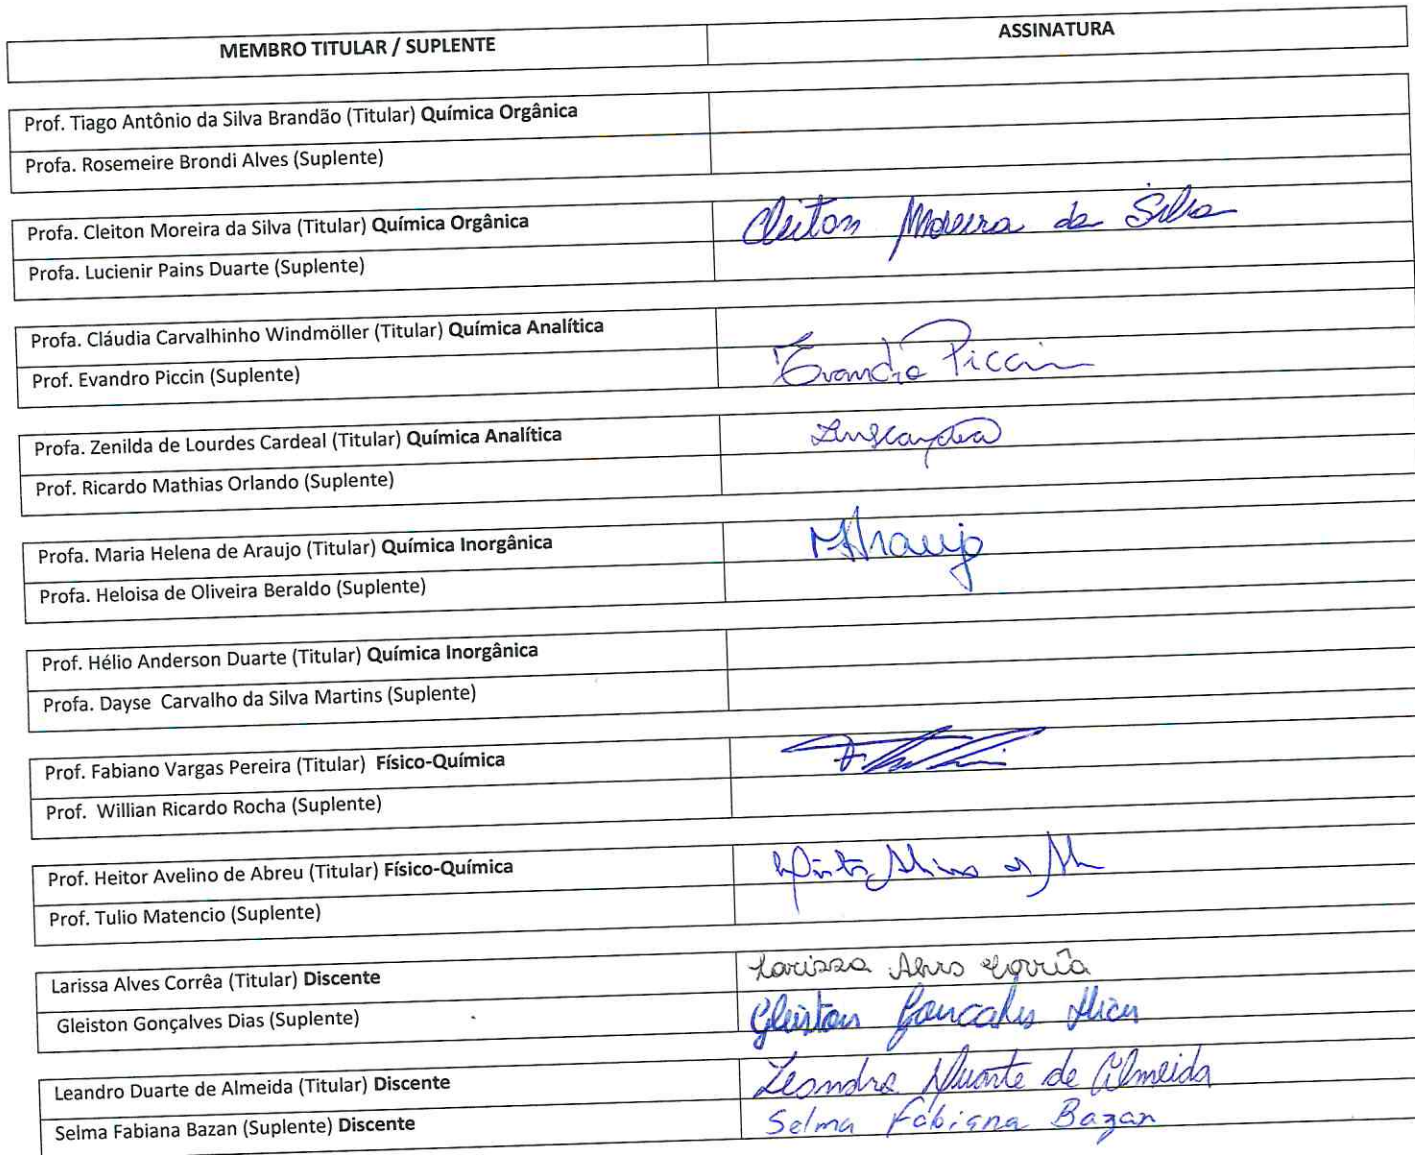 MEMBRO TITULAR / SUPLENTE ASSINATURA
Prof. Tiago Antônio da Silva Brandão (Titular) Química Orgânica
Profa. Rosemeire Brondi Alves (Suplente)
Profa. Cleiton Moreira da Silva (Titular) Química Orgânica Cleiton Moreira da Silva
Profa. Lucienir Pains Duarte (Suplente)
Profa. Cláudia Carvalhinho Windmöller (Titular) Química Analítica
Prof. Evandro Piccin (Suplente) Evandro Piccin
Profa. Zenilda de Lourdes Cardeal (Titular) Química Analítica
Prof. Ricardo Mathias Orlando (Suplente)
Profa. Maria Helena de Araujo (Titular) Química Inorgânica MHAraujo
Profa. Heloisa de Oliveira Beraldo (Suplente)
Prof. Hélio Anderson Duarte (Titular) Química Inorgânica
Profa. Dayse Carvalho da Silva Martins (Suplente)
Prof. Fabiano Vargas Pereira (Titular) Físico-Química
Prof. Willian Ricardo Rocha (Suplente)
Prof. Heitor Avelino de Abreu (Titular) Físico-Química
Prof. Tulio Matencio (Suplente)
Larissa Alves Corrêa (Titular) Discente Larissa Alves Corrêa
Gleiston Gonçalves Dias (Suplente) Gleiston Goncalves Dias
Leandro Duarte de Almeida (Titular) Discente Leandro Duarte de Almeida
Selma Fabiana Bazan (Suplente) Discente Selma Fabiana Bazan